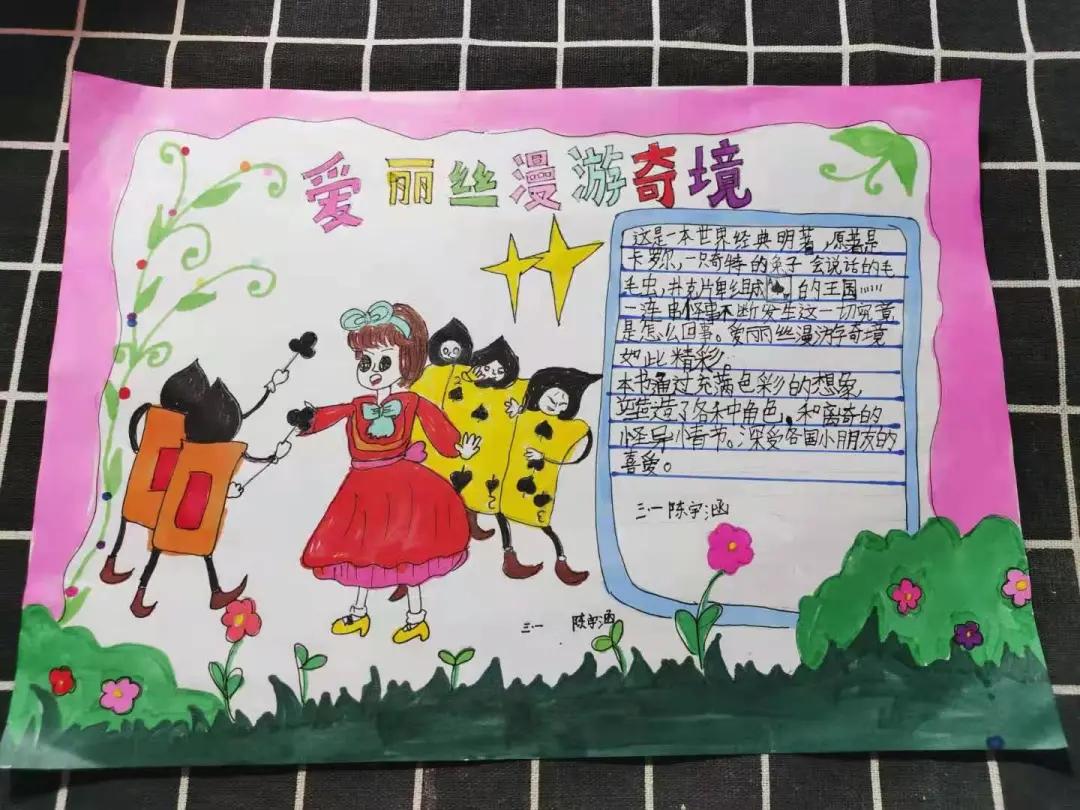 爱丽丝漫游奇境
这是一本世界经典明著,原著是
卡罗尔,一只奇特的兔子会说话的毛
毛虫,扑克片牌组成♠的王国……
一连串怪事不断发生这一切究竟
是怎么回事。爱丽丝漫游奇境
如此精彩。
本书通过充满色彩的想象,
塑造了各种角色,和离奇的
怪异小情节。深受各国小朋友的
喜爱。
三·一陈宇涵
三·一 陈宇涵